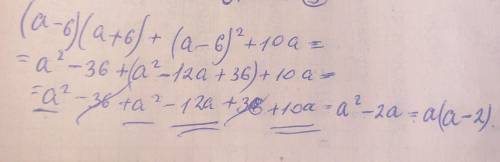 (a-6)(a+6) + (a-6)²+10a =
= a² - 36 + (a² - 12a + 36) + 10a =
= a² - 36 + a² - 12a + 36 + 10a = a² - 2a = a(a-2).